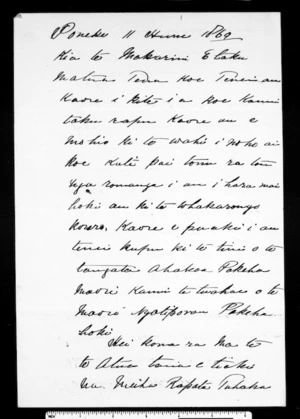 Poneke 11 Hune 1869
Kia te Makarini E taku
Matua Tena koe Tenei au
Kaore i kite i a koe Kanui
taku rapu Kaore au e
mohio ki te wahi i noho ai
koe Kati pai tonu ra tou
nga romanga i au i hara mai
hoki au ki te whakarongo
korero, Kaore e puaki i au
tenei kupu ki te tini o te
tangata Ahakoa Pakeha
maori Kanui te o te
maori Ngatiporou Pakeha
hoki
Hei kona ra Ma te
te Atua tonu e tiaki
na Meiha Rapata